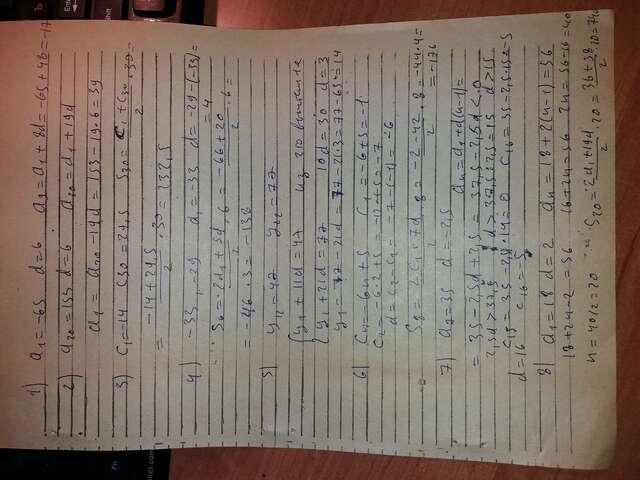 1) a₁ = -65 d = 6 a₉ = a₁ + 8d = -65 + 48 = -17
2) a₂₀ = 153 d = 6 a₂₀ = a₁ + 19d
a₁ = a₂₀ - 19d = 153 - 19·6 = 39
3) C₁ = -14 C₃₀ = 29,5 S₃₀ = (C₁ + C₃₀)/2 · 30 =
= (-14 + 29,5)/2 · 30 = 232,5
4) -33, -29 a₁ = -33 d = -29 - (-33) =
= 4
S₆ = (2a₁ + 5d)/2 · 6 = (-66 + 20)/2 · 6 =
= -46 · 3 = -138
5) y₁₂ = 47 y₂₂ = 77
{ y₁ + 11d = 47 из 2го
{ y₁ + 21d = 77 10d = 30 d = 3
y₁ = 77 - 21d = 77 - 21·3 = 77 - 63 = 14
6) Cₙ = -6n + 5 C₁ = -6 + 5 = -1
C₂ = -6·2 + 5 = -12 + 5 = -7
d = C₂ - C₁ = -7 - (-1) = -6
S₈ = (2C₁ + 7d)/2 · 8 = (-2 - 42)/2 · 8 = -44·4 =
= -176
7) a₁ = 35 d = -2,5
aₙ = a₁ + d(n-1) =
= 35 - 2,5d + 2,5 = 37,5 - 2,5d < 0
2,5d > 37,5 d > 37,5 : 2,5 = 15 d > 15
C₁₅ = 35 - 2,5·14 = 0 C₁₆ = 35 - 2,5·15 = -5
d = 16 C₁₆ = -5
8) a₁ = 18 d = 2 aₙ = 18 + 2(n-1) = 56
18 + 2n - 2 = 56 16 + 2n = 56 2n = 56 - 16 = 40
n = 40/2 = 20 S₂₀ = (2a₁ + 19d)/2 · 20 = (36 + 38)/2 · 20 = 740
Enter